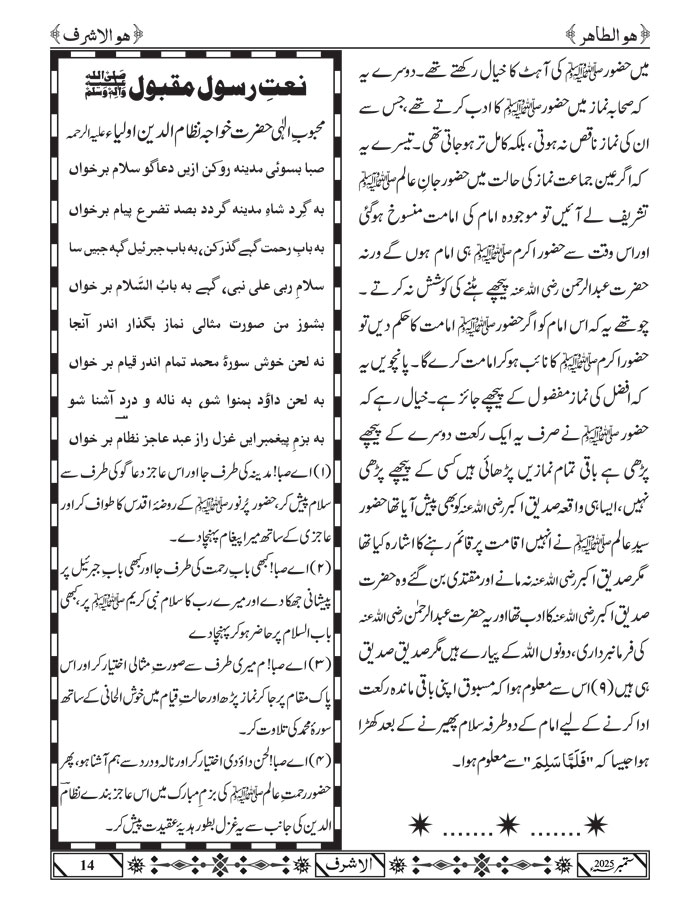 ﴿ھو الطاہر﴾
﴿ھو الاشرف﴾
میں حضور ﷺ کی آہٹ کا خیال رکھتے تھے۔ دوسرے یہ
کہ صحابہ نماز میں حضور ﷺ کا ادب کرتے تھے، جس سے
ان کی نماز ناقص نہ ہوتی، بلکہ کامل تر ہو جاتی تھی۔ تیسرے یہ
کہ اگر عین جماعت نماز کی حالت میں حضور جانِ عالم ﷺ
تشریف لے آئیں تو موجودہ امام کی امامت منسوخ ہوگئی
اور اس وقت سے حضور اکرم ﷺ ہی امام ہوں گے ورنہ
حضرت عبدالرحمن رضی اللہ عنہ پیچھے ہٹنے کی کوشش نہ کرتے ۔
چوتھے یہ کہ اس امام کو اگر حضور ﷺ امامت کا حکم دیں تو
حضور اکرم ﷺ کا نائب ہو کر امامت کرے گا ۔ پانچویں یہ
کہ افضل کی نماز مفضول کے پیچھے جائز ہے۔ خیال رہے کہ
حضور ﷺ نے صرف یہ ایک رکعت دوسرے کے پیچھے
پڑھی ہے باقی تمام نمازیں پڑھائی ہیں کسی کے پیچھے پڑھی
نہیں، ایسا ہی واقعہ صدیق اکبر رضی اللہ عنہ کو بھی پیش آیا تھا حضور
سیدِ عالم ﷺ نے انہیں اقامت پر قائم رہنے کا اشارہ کیا تھا
مگر صدیق اکبر رضی اللہ عنہ نہ مانے اور مقتدی بن گئے وہ حضرت
صدیق اکبر رضی اللہ عنہ کا ادب تھا اور یہ حضرت عبدالرحمٰن رضی اللہ عنہ
کی فرمانبرداری، دونوں اللہ کے پیارے ہیں مگر صدیق صدیق
ہی ہیں (۹) اس سے معلوم ہوا کہ مسبوق اپنی باقی ماندہ رکعت
ادا کرنے کے لیے امام کے دو طرفہ سلام پھیرنے کے بعد کھڑا
ہوا جیسا کہ "فَلَمَّا سَلِمَ" سے معلوم ہوا۔
✷ ....... ✷ ....... ✷
نعتِ رسول مقبول صلی اللہ علیہ وآلہ وسلم
محبوبِ الٰہی حضرت خواجہ نظام الدین اولیاء علیہ الرحمہ
صبا بسوئی مدینہ روکن ازیں دعاگو سلام برخواں
بہ گِرد شاہِ مدینہ گردد بصد تضرع پیام برخواں
بہ بابِ رحمت گہے گذر کن، بہ باب جبرئیل گہہ جبیں سا
سلامِ ربی علی نبی، گہے بہ بابُ السَّلام بر خواں
بشوز من صورت مثالی نماز بگذار اندر آنجا
نہ لحن خوش سورۂ محمد تمام اندر قیام بر خواں
بہ لحن داؤد ہمنوا شو، بہ نالہ و درد آشنا شو
بہ بزمِ پیغمبر ایں غزل راز عبد عاجز نظام بر خواں
(۱) اے صبا! مدینہ کی طرف جا اور اس عاجز دعا گو کی طرف سے
سلام پیش کر، حضور پُرنور ﷺ کے روضۂ اقدس کا طواف کر اور
عاجزی کے ساتھ میرا پیغام پہنچا دے۔
(۲) اے صبا! کبھی بابِ رحمت کی طرف جا اور کبھی بابِ جبرئیل پر
پیشانی جھکا دے اور میرے رب کا سلام نبی کریم ﷺ پر، کبھی
باب السلام پر حاضر ہو کر پہنچا دے
(۳) اے صبا! م میری طرف سے صورتِ مثالی اختیار کر اور اس
پاک مقام پر جا کر نماز پڑھ اور حالتِ قیام میں خوش الحانی کے ساتھ
سورۂ محمد کی تلاوت کر۔
(۴) اے صبا! لحن داؤدی اختیار کر اور نالہ و درد سے ہم آشنا ہو، پھر
حضور رحمتِ عالم ﷺ کی بزمِ مبارک میں اس عاجز بندے نظام
الدین کی جانب سے یہ غزل بطور ہدیۂ عقیدت پیش کر۔
ستمبر 2025ء
الاشرف
14